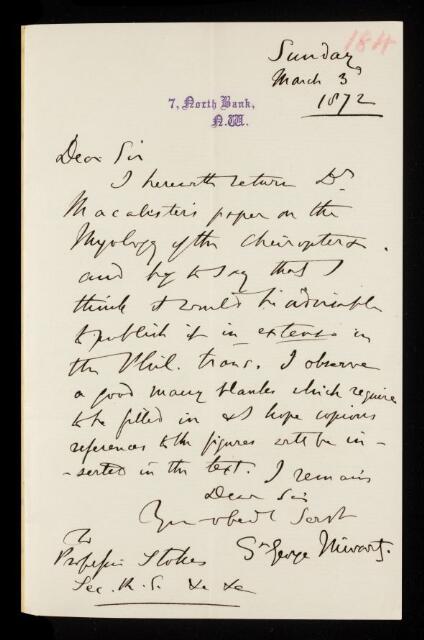 184
Sunday
March 3d
1872
7, North Bank,
N.W.
Dear Sir
I herewith return Dr
Macalister's paper on the
Myology of the Cheiroptera.
and beg to say that I
think it would be advisable
to publish it in extenso in
the Phil. trans. I observe
a good many blanks which require
to be filled in & I hope copious
references to the figures will be in-
-serted in the text. I remain
Dear Sir
Your obedt Servt
St George Mivart.
To
Professor Stokes
Sec. R. S. &c &c